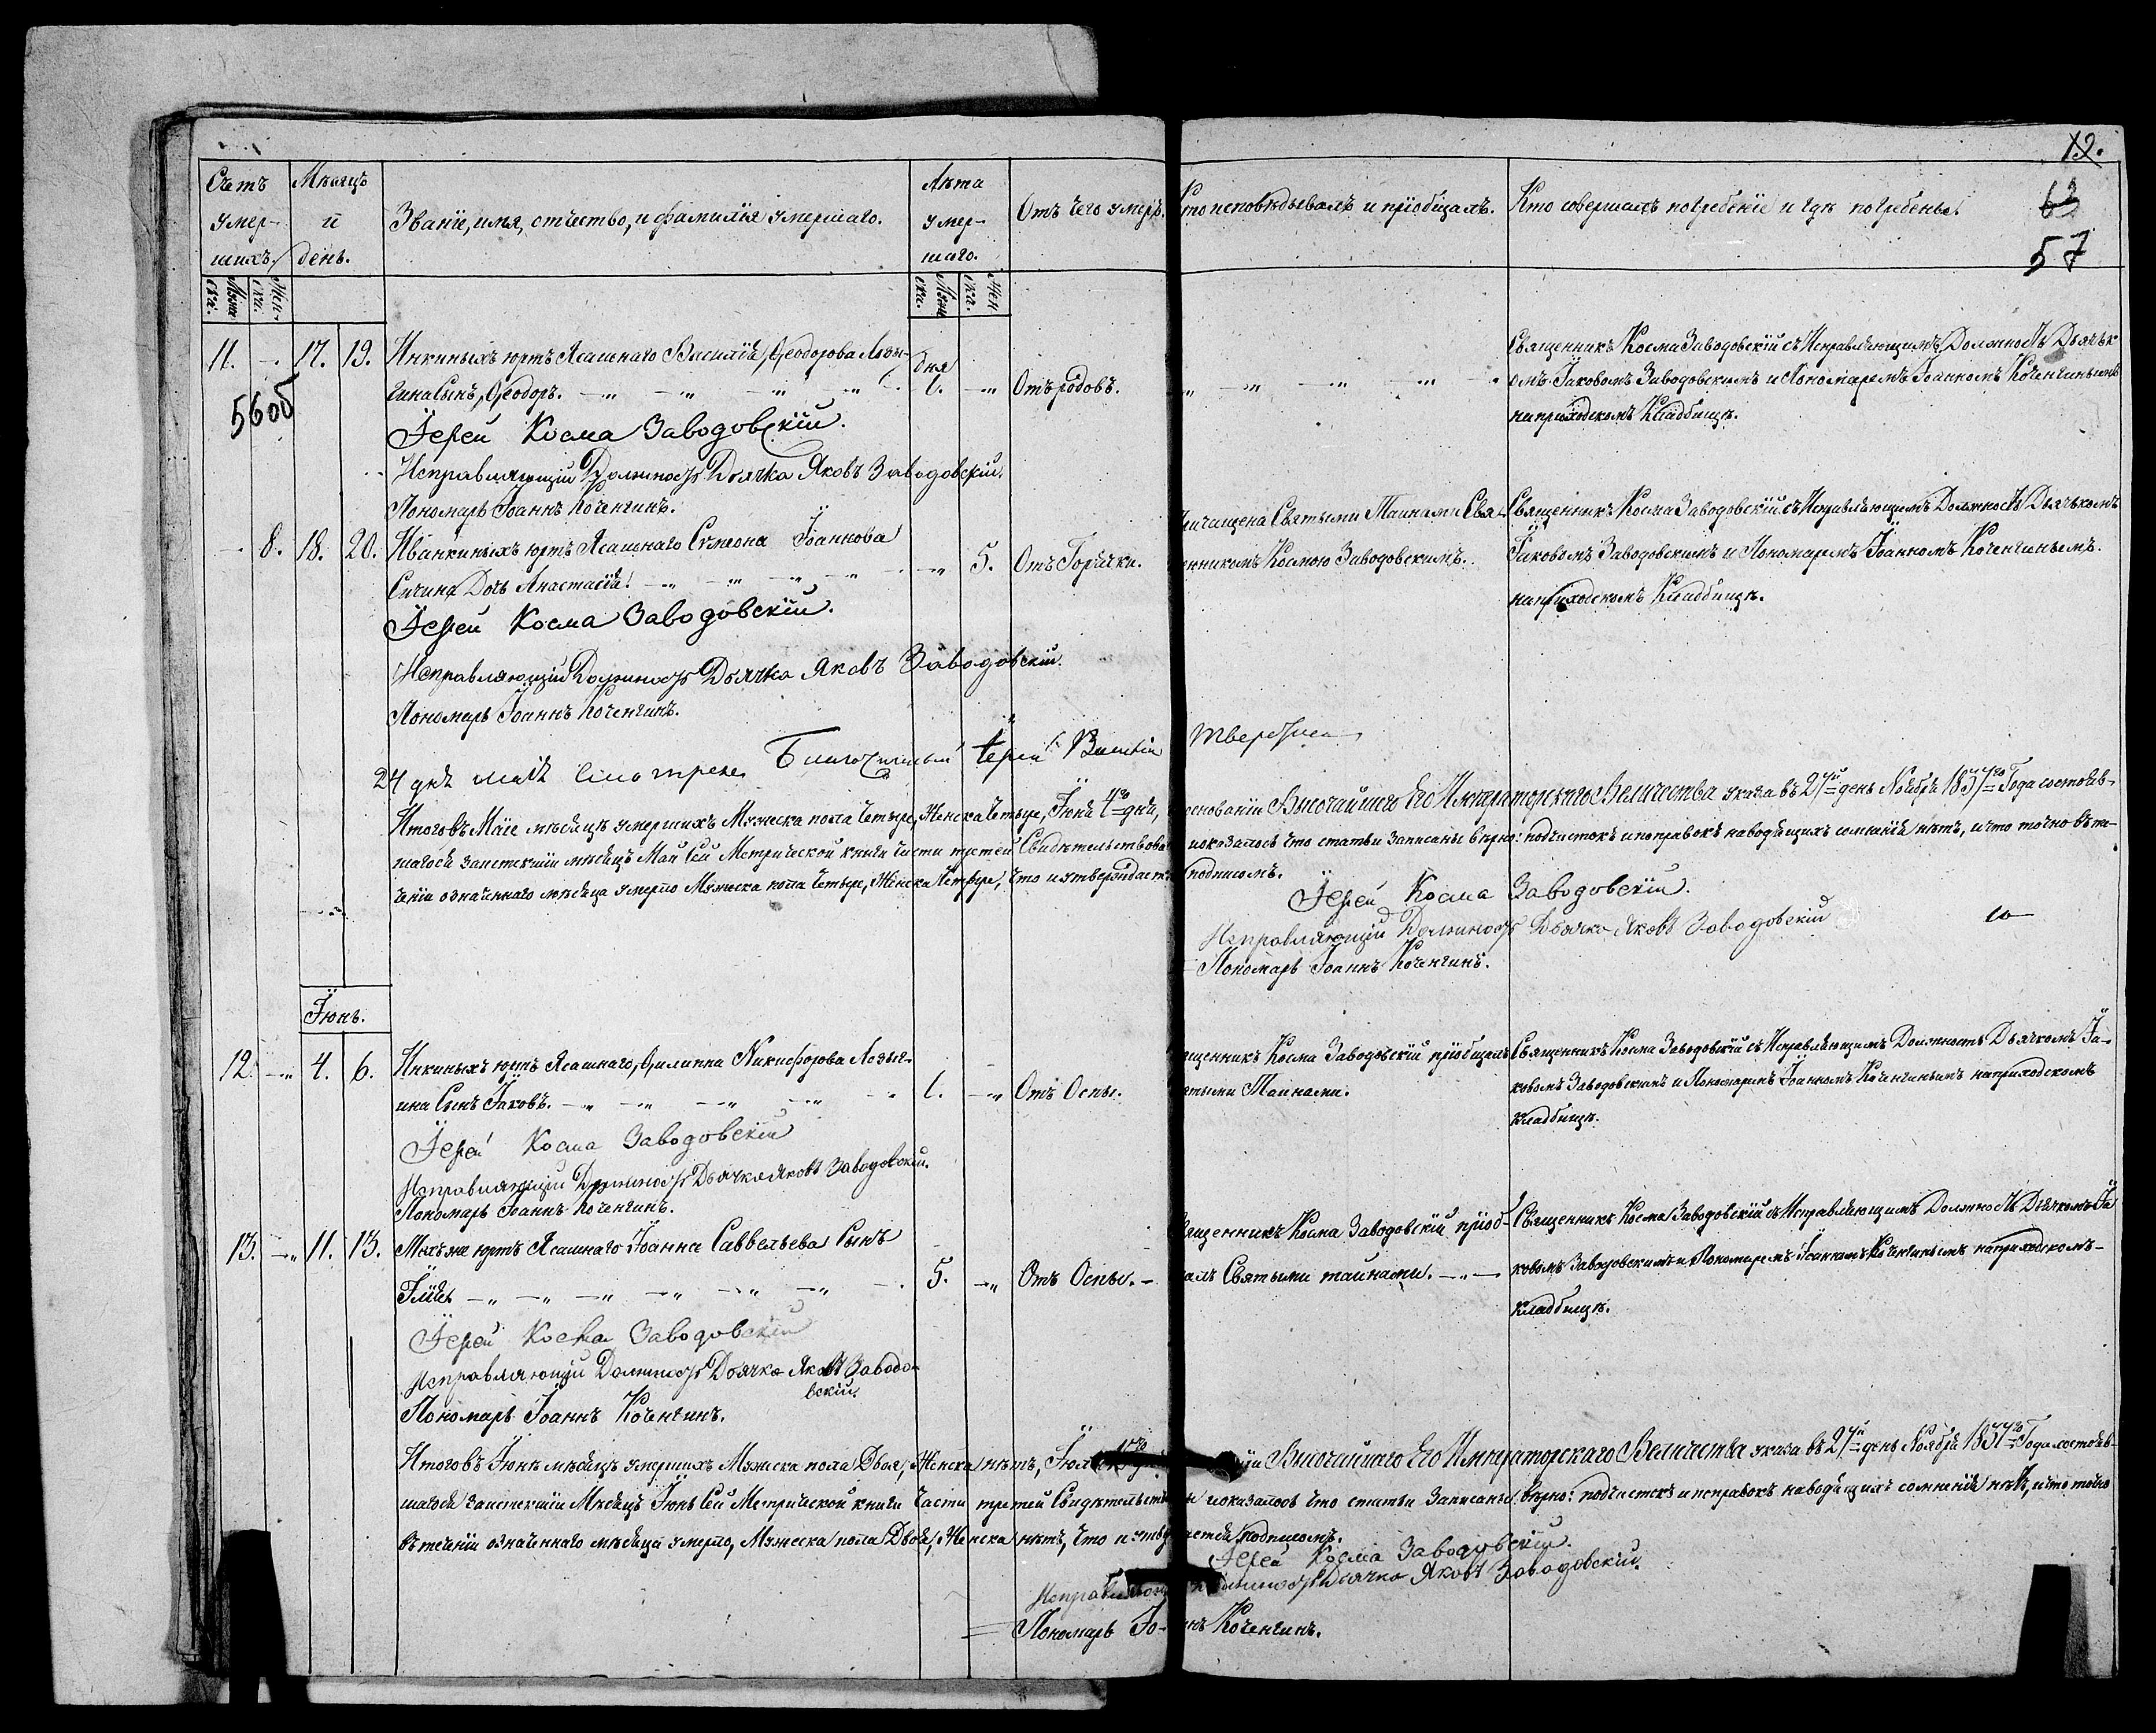 12.
63
57
Счетъ умер- шихъ.
Мѣсяцъ и день.
Званіе, имя, отчество, и фамилія умершаго.
Лѣта умер- шаго.
Отъ чего умеръ.
Кто исповѣдывалъ и пріобщалъ.
Кто совершалъ погребеніе и гдѣ погребены.
Муже ска.
Жен- ска.
Муже ска.
Жен ска.
11. - 17. 19. Инкиныхъ юртъ Ясашнаго Василія Ѳеодорова Лозы-
гина Сынъ Ѳеодоръ.
дня
6.
Отъ родовъ.
Священникъ Косма Заводовскій съ Исправляющимъ Должность Дьячк
омъ Іаковомъ Заводовскимъ и Пономаремъ Іоанномъ Коченгинымъ
на приходскомъ Кладбищѣ.
56об
Іерей Косма Заводовскій.
Исправляющій Должность Дьячка Яковъ Заводовскій.
Пономарь Іоаннъ Коченгинъ.
- 8. 18. 20. Иванкиныхъ юртъ Ясашнаго Сѵмеона Іоаннова
Сичина Дочь Анастасія.
5.
Отъ Горячки.
Причащена Святыми Тайнами Свя-
енникомъ Космою Заводовскимъ.
Священникъ Косма Заводовскій съ Исправляющимъ Должность Дьячькомъ
Іаковомъ Заводовскимъ и Пономаремъ Іоанномъ Коченгинымъ.
на приходскомъ Кладбищѣ.
Іерей Косма Заводовскій.
Исправляющій Должность Дьячка Яковъ Заводовскій.
Пономарь Іоаннъ Коченгинъ.
24 дня маія смотрелъ Благочинный Іерей
Итого въ Маіе мѣсяцѣ умершихъ Мужеска пола Четыре, Женска Четыре, Іюня 4го дня, основаніи Высочайшаго Его Императорскаго Величества указа въ 27й день Ноября 1837го Года состояв-
шагося за истекшій мѣсяцъ Май Сей Метрической книги части третей Свидѣтельствова показалось что статьи записаны вѣрно: подчистокъ и поправокъ наводящихъ сомнѣній нѣтъ, и что точно въ те-
ченіи означеннаго мѣсяца умерло Мужеска пола Четыре, Женска Четыре, что и утверждаетъ подписомъ.
Іерей Косма Заводовскій.
Исправляющій Должность Дьячка Яковъ Заводовскій
Пономарь Іоаннъ Коченгинъ.
Іюнь.
12. 4. 6. Инкиныхъ юртъ Ясашнаго Филиппа Никифорова Лозыг-
ина Сынъ Іаковъ.
1.
Отъ Оспы.
ященникъ Косма Заводовскій пріобщилъ
ятыми Тайнами.
Священникъ Косма Заводовскій съ Исправляющимъ Должность Дьячкомъ Іа-
ковомъ Заводовскимъ и Пономаремъ Іоанномъ Коченгинымъ на приходскомъ
кладбищѣ.
Іерей Косма Заводовскій
Исправляющій Должность Дьячка Яковъ Заводовскій.
Пономарь Іоаннъ Коченгинъ.
13. 11. 13. юртъ Ясашнаго Іоанна Савельева Сынъ
Илія
5.
Отъ Оспы.
вященникъ Косма Заводовскій пріоб-
алъ Святыми тайнами.
Священникъ Косма Заводовскій съ Исправляющимъ Должность Дьячкомъ Іа
ковомъ Заводовскимъ и Пономаремъ Іоанномъ Коченгинымъ на приходскомъ
кладбищѣ.
Іерей Косма Заводовскій
Исправляющій Должность Дьячка Яковъ Заводо-
вскій.
Пономарь Іоаннъ Коченгинъ.
Итого въ Іюнѣ мѣсяцѣ умершихъ Мужеска пола Двое, Женска нѣтъ, Высочайшаго Его Императорскаго Величества указа въ 27й день Ноября 1837го Года состояв-
шагося за истекшій Мѣсяцъ Іюнь Сей Метрической книги Части третей Свидѣтельств показалось что статьи Записаны вѣрно: подчистокъ и поправокъ наводящихъ сомнѣній нѣтъ, и что точно
въ теченіи означеннаго мѣсяца умерло, Мужеска пола Двое, Женска нѣтъ, что и утв подписомъ.
Іерей Косма Заводовскій.
Исправляющ Должность Дьячка Яковъ Заводовскій.
Пономарь Іо- ннъ Коченгинъ.